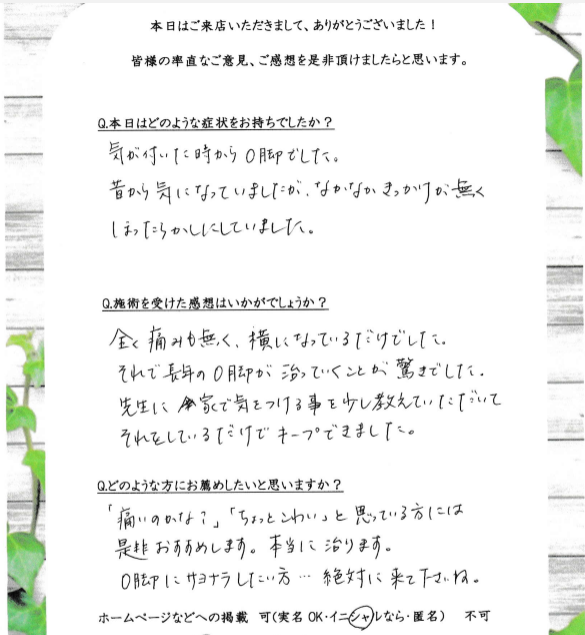 本日はご来店いただきまして、ありがとうございました！
皆様の率直なご意見、ご感想を是非頂けましたらと思います。
Q.本日はどのような症状をお持ちでしたか？
気が付いた時からO脚でした。
昔から気になっていましたが、なかなかきっかけが無く
ほったらかしにしていました。
Q.施術を受けた感想はいかがでしょうか？
全く痛みも無く、横になっているだけでした。
それで長年のO脚が治っていくことが驚きでした。
先生に家で気をつける事を少し教えていただいて
それをしているだけでキープできました。
Q.どのような方にお薦めしたいと思いますか？
「痛いのかな？」「ちょっとこわい」と思っている方には
是非おすすめします。本当に治ります。
O脚にサヨナラしたい方…絶対に来て下さいね。
ホームページなどへの掲載　可(実名OK・イニシャルなら・匿名)　不可